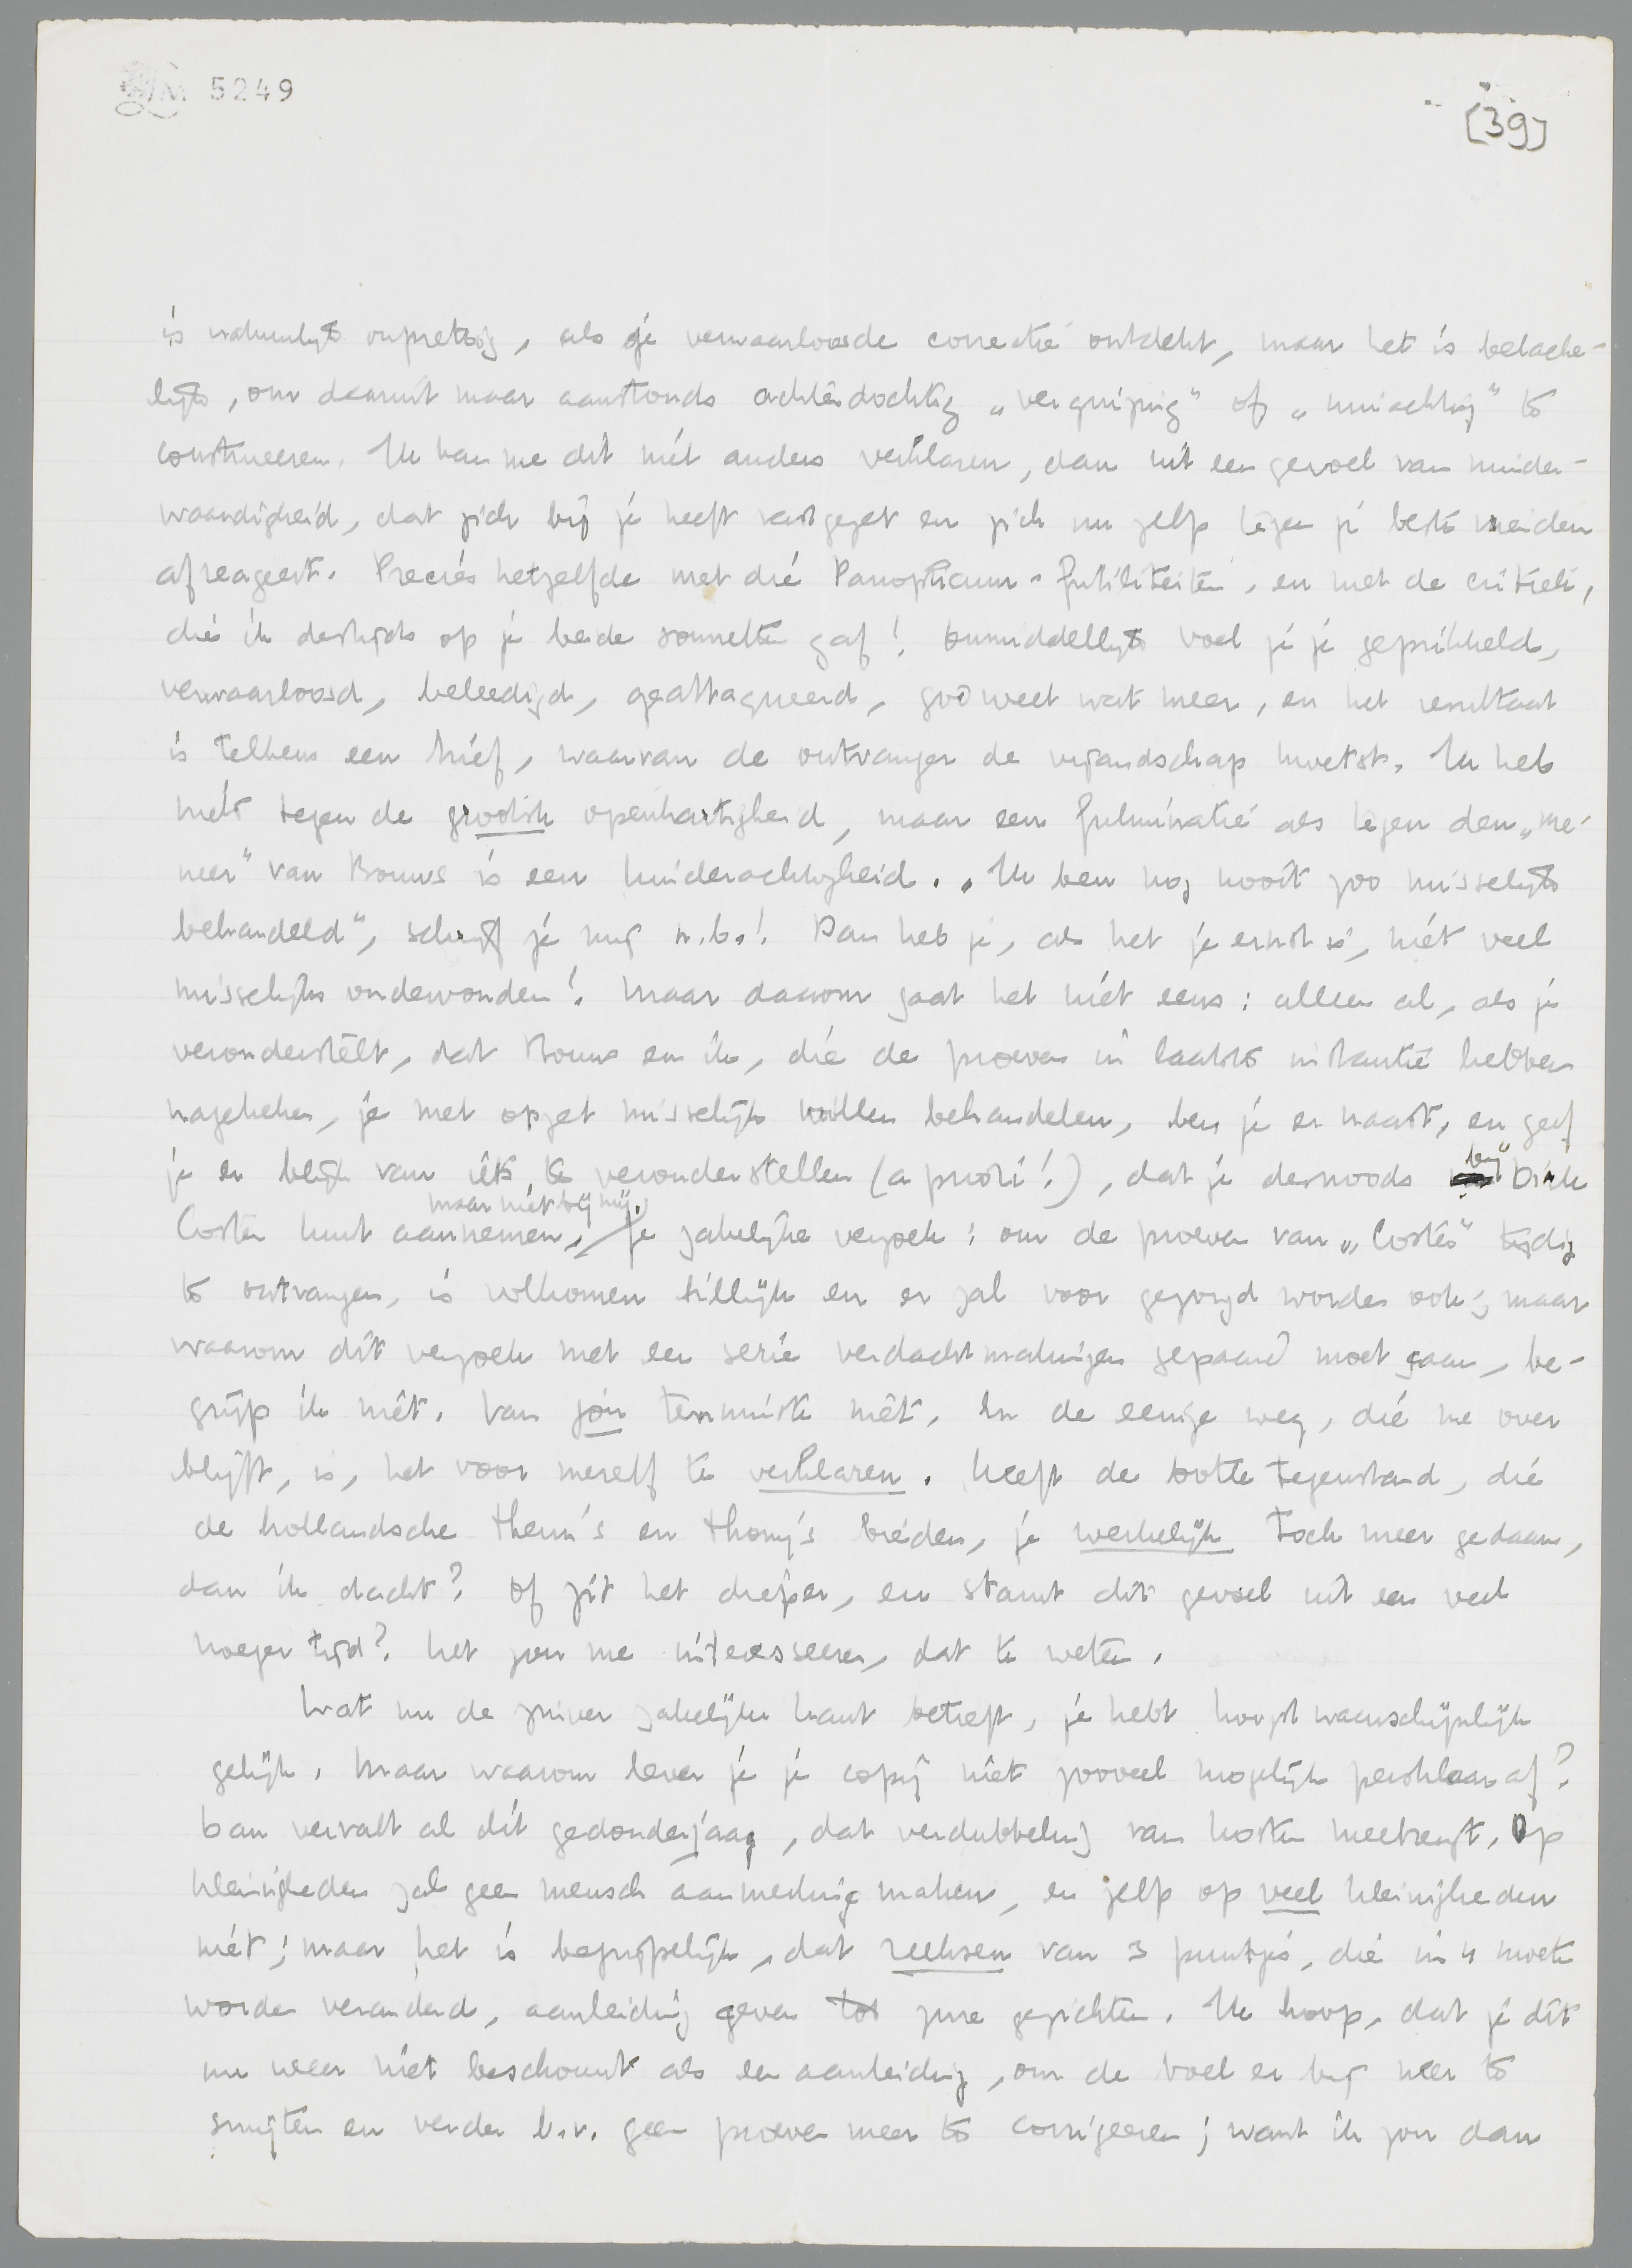 LM 5249
[39]
is natuurlijk onprettig, als je verwaarloosde correctie ontdekt, maar het is belache-
lijk, om daaruit maar aanstonds achterdochtig „vergrijping" of „minachting" te
construeeren. Ik kan me dit niet anders verklaren, dan uit een gevoel van minder-
waardigheid, dat zich bij je heeft vastgezet en zich nu zelfs tegen je beste vrienden
afreageert. Precies hetzelfde met die Panopticum-futiliteiten, en met de critiek,
die ik destijds op je beide sonnetten gaf! Onmiddellijk voel je je geprikkeld,
verwaarloosd, beleedigd, geattaqueerd, god weet wat meer, en het resultaat
is telkens een brief, waarvan de ontvanger de vijandschap kwetst. Ik heb
niets tegen de grootste openhartigheid, maar een fulminatie als tegen den „me-
neer" van Bouws is een kinderachtigheid. „Ik ben nog nooit zoo misselijk
behandeld", schrijf je mij n.b.! Dan heb je, als het je ernst is, niet veel
misselijks ondervonden! Maar daarom gaat het niet eens: alleen al, als je
veronderstelt, dat Bouws en ik, die de proeven in laatste instantie hebben
nagekeken, je met opzet misselijk willen behandelen, ben je er naast, en geef
je er blijk van iets te veronderstellen (a priori!), dat je desnoods bij Dirk
Coster kunt aannemen, maar niet bij mij. Je zakelijke verzoek: om de proeven van „Coster" tijdig
te ontvangen, is volkomen billijk en er zal voor gezorgd worden ook; maar
waarom dit verzoek met een serie verdachtmakingen gepaard moet gaan, be-
grijp ik niet. Van jou tenminste niet. En de eenige weg, die me over
blijft, is, het voor mezelf te verklaren. Heeft de botte tegenstand, die
de hollandsche Theun's en Thony's bieden, je werkelijk toch meer gedaan,
dan ik dacht? Of zit het dieper, en stamt dit gevoel uit een veel
vroeger tijd? Het zou me interesseeren, dat te weten.
Wat nu de zuiver zakelijke kant betreft, je hebt hoogst waarschijnlijk
gelijk. Maar waarom lever je je copij niet zooveel mogelijk persklaar af?
Dan vervalt al dit gedonderjaag, dat verdubbeling van kosten meebrengt. Op
kleinigheden zal geen mensch aanmerking maken, en zelfs op veel kleinigheden
niet; maar het is begrijpelijk, dat reeksen van 3 puntjes, die in 4 moeten
worden veranderd, aanleiding geven tot zure gezichten. Ik hoop, dat je dit
nu weer niet beschouwt als een aanleiding, om de boel er bij neer te
smijten en verder b.v. geen proeven meer te corrigeeren; want ik zou dan